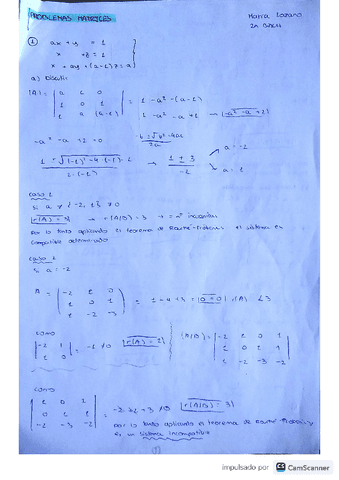 PROBLEMAS MATRICES
María Lozano
2º BACH
① ax + y = 1
x + z = 1
x + ay + (a-1)z = a
a) Discutir
|A| = | a 1 0 | = 1 - a² - (a-1)
| 1 0 1 | 1 - a² - a + 1 → -a² - a + 2
| 1 a (a-1) |
-a² - a + 2 = 0
-b ± √b² - 4ac
2a
1 ± √(-1)² - 4·(-1)·2 → 1 ± 3 a = -2
2·(-1) -2 a = 1
CASO 1
Si a ≠ {-2, 1} ≠ 0
r(A) = 3 → r(A|B) = 3 = nº incógnitas
Por lo tanto aplicando el teorema de Rouché-Fröbenius el sistema es
compatible determinado
CASO
Si a = -2
A = ( -2 1 0 ) = 1 - 4 + 3 = 0 = 0 r(A) < 3
( 1 0 1 )
( 1 -2 -3 )
COMO
| -2 1 | = -1 ≠ 0 r(A) = 2
| 1 0 |
(A|B) = | -2 1 0 1 |
| 1 0 1 1 |
| 1 -2 -3 -2 |
COMO
| 1 0 1 |
| 0 1 1 | ≠ 0 r(A|B) = 3
| -2 -3 -2 |
Por lo tanto aplicando el teorema de Rouché
es un sistema incompatible
impulsado por CS CamScanner